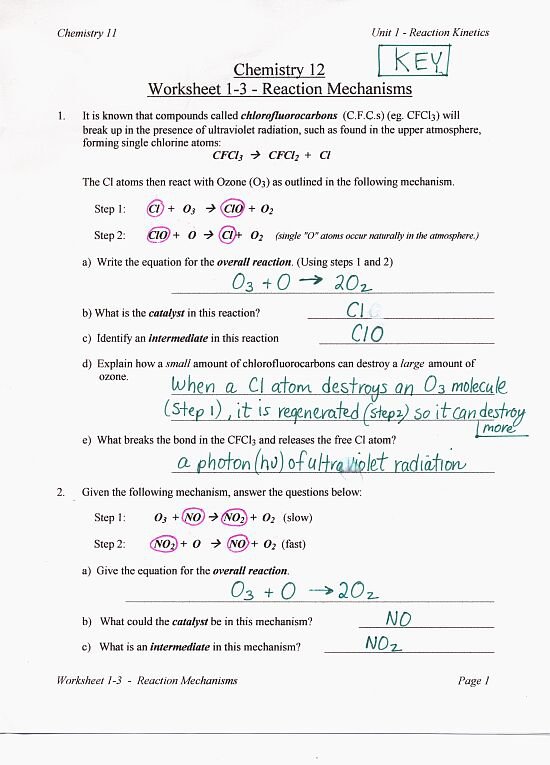 Chemistry 11 Unit 1 - Reaction Kinetics
KEY
Chemistry 12
Worksheet 1-3 - Reaction Mechanisms
1. It is known that compounds called chlorofluorocarbons (C.F.C.s) (eg. CFCl3) will
break up in the presence of ultraviolet radiation, such as found in the upper atmosphere,
forming single chlorine atoms:
CFCl3 → CFCl2 + Cl
The Cl atoms then react with Ozone (O3) as outlined in the following mechanism.
Step 1: Cl + O3 → ClO + O2
Step 2: ClO + O → Cl + O2 (single "O" atoms occur naturally in the atmosphere.)
a) Write the equation for the overall reaction. (Using steps 1 and 2)
O3 + O → 2O2
b) What is the catalyst in this reaction? Cl
c) Identify an intermediate in this reaction ClO
d) Explain how a small amount of chlorofluorocarbons can destroy a large amount of
ozone.
When a Cl atom destroys an O3 molecule
(Step 1), it is regenerated (step 2) so it can destroy
more
e) What breaks the bond in the CFCl3 and releases the free Cl atom?
a photon (hυ) of ultraviolet radiation
2. Given the following mechanism, answer the questions below:
Step 1: O3 + NO → NO2 + O2 (slow)
Step 2: NO2 + O → NO + O2 (fast)
a) Give the equation for the overall reaction.
O3 + O → 2O2
b) What could the catalyst be in this mechanism? NO
c) What is an intermediate in this mechanism? NO2
Worksheet 1-3 - Reaction Mechanisms Page 1